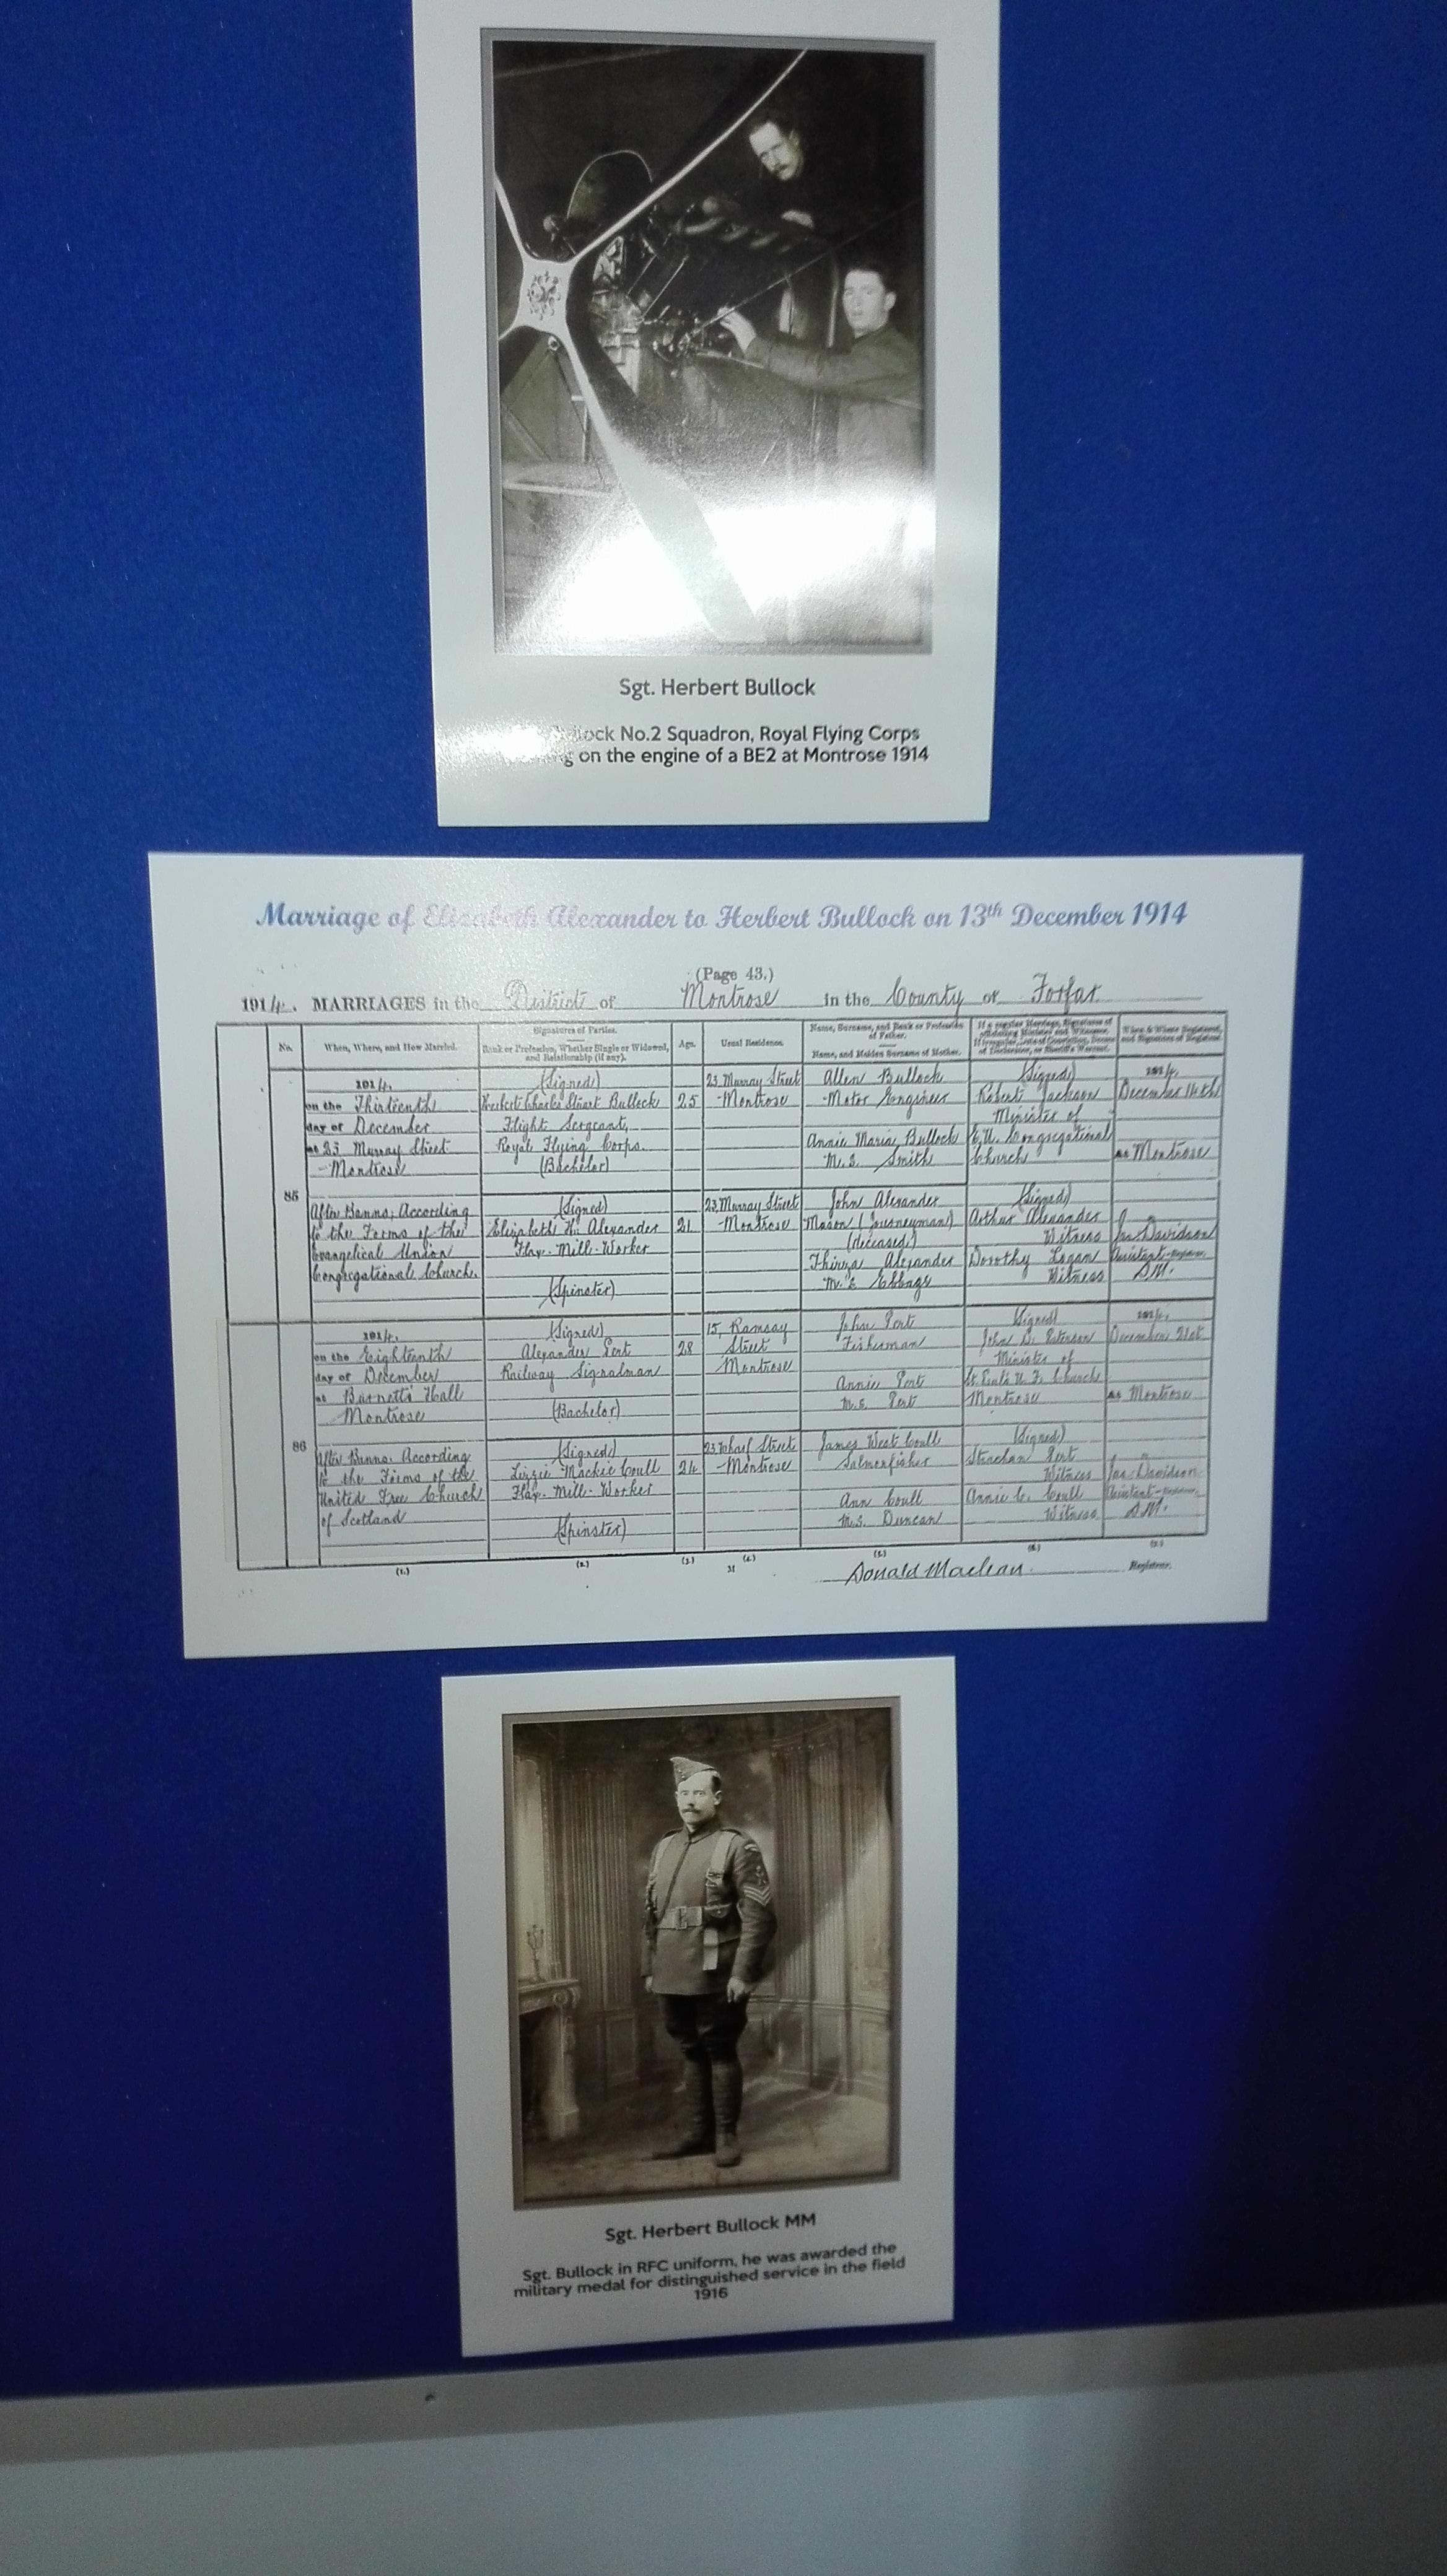 Sgt. Herbert Bullock
Bullock No.2 Squadron, Royal Flying Corps
on the engine of a BE2 at Montrose 1914
Marriage of Elizabeth Alexander to Herbert Bullock on 13th December 1914
(Page 43.)
1914. MARRIAGES in the District of Montrose in the County of Forfar
No.
When, Where, and How Married.
Signatures of Parties.
Rank or Profession, Whether Single or Widowed,
and Relationship (if any).
Age.
Usual Residence.
Name, Surname, and Rank or Profession
of Father.
Name, and Maiden Surname of Mother.
85
1914.
on the Thirteenth
day of December
at 23 Murray Street
Montrose
After Banns, According
to the Forms of the
Evangelical Union
Congregational Church.
(Signed)
Herbert Charles Stuart Bullock
Flight Sergeant,
Royal Flying Corps.
(Bachelor)
(Signed)
Elizabeth H. Alexander
Flax-Mill-Worker
(Spinster)
25
21
23, Murray Street
Montrose
23, Murray Street
Montrose
Allen Bullock
Motor Engineer
Annie Maria Bullock
M.S. Smith
John Alexander
Mason (Journeyman)
(deceased)
Thirza Alexander
M.S.
(Signed)
Robert Jackson
Minister of
E.U. Congregational
Church
(Signed)
Arthur Alexander
Witness
Dorothy Logan
Witness
1914.
December 14th
at Montrose
Jas. Davidson
Assistant-Registrar.
D.M.
86
1914.
on the Eighteenth
day of December
at Burnett's Hall
Montrose
After Banns, According
to the Forms of the
United Free Church
of Scotland
(Signed)
Alexander Pert
Railway Signalman
(Bachelor)
(Signed)
Lizzie Mackie Coull
Flax-Mill-Worker
(Spinster)
28
24
15, Ramsay
Street
Montrose
23, Wharf Street
Montrose
John Pert
Fisherman
Annie Pert
M.S. Pert
James West Coull
Salmonfisher
Ann Coull
M.S. Duncan
(Signed)
John D.
Minister of
St. Paul's U.F. Church
Montrose
(Signed)
Strachan Pert
Witness
Annie C. Coull
Witness
1914.
December 21st
at Montrose
Jas. Davidson
Assistant-Registrar.
D.M.
(1.) (2.) (3.) (4.) (5.) (6.) (7.)
31
Donald Maclean Registrar.
Sgt. Herbert Bullock MM
Sgt. Bullock in RFC uniform, he was awarded the
military medal for distinguished service in the field
1916